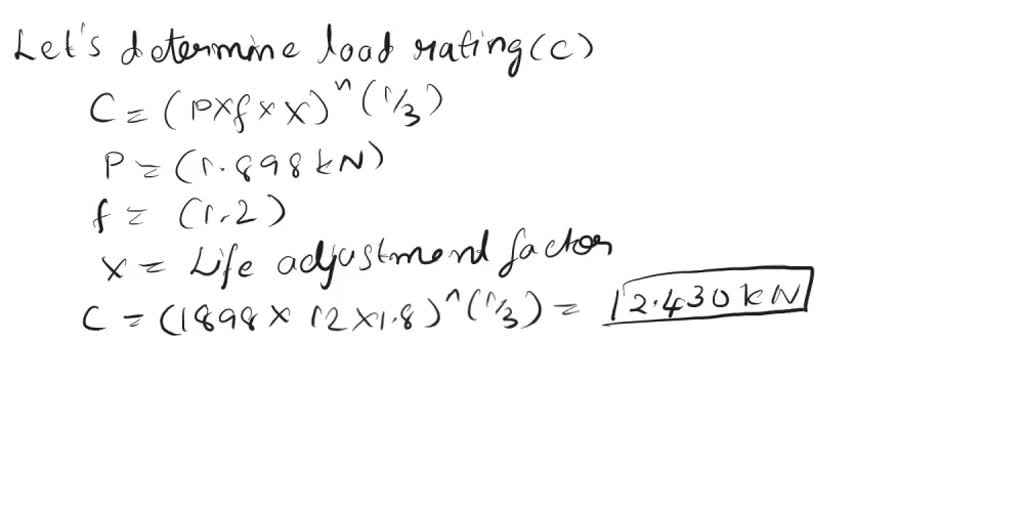 Let's determine load rating (C)
C = (P×f×X)^(1/3)
P = (1.898 kN)
f = (1.2)
X = Life adjustment factor
C = (1898 × 12 × 1.8)^(1/3) = 12.430 kN